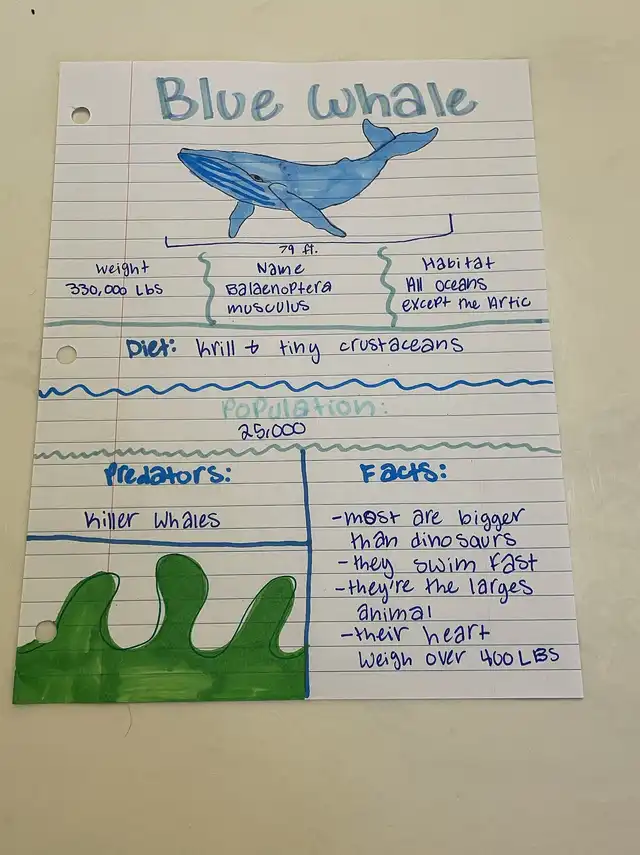 Blue Whale
79 ft.
Weight
330,000 LBS
Name
Balaenoptera
musculus
Habitat
All oceans
except the Artic
Diet: Krill & tiny crustaceans
Population:
25,000
Predators:
Killer Whales
Facts:
-most are bigger
than dinosaurs
-they swim fast
-they're the larges
animal
-their heart
weigh over 400 LBS